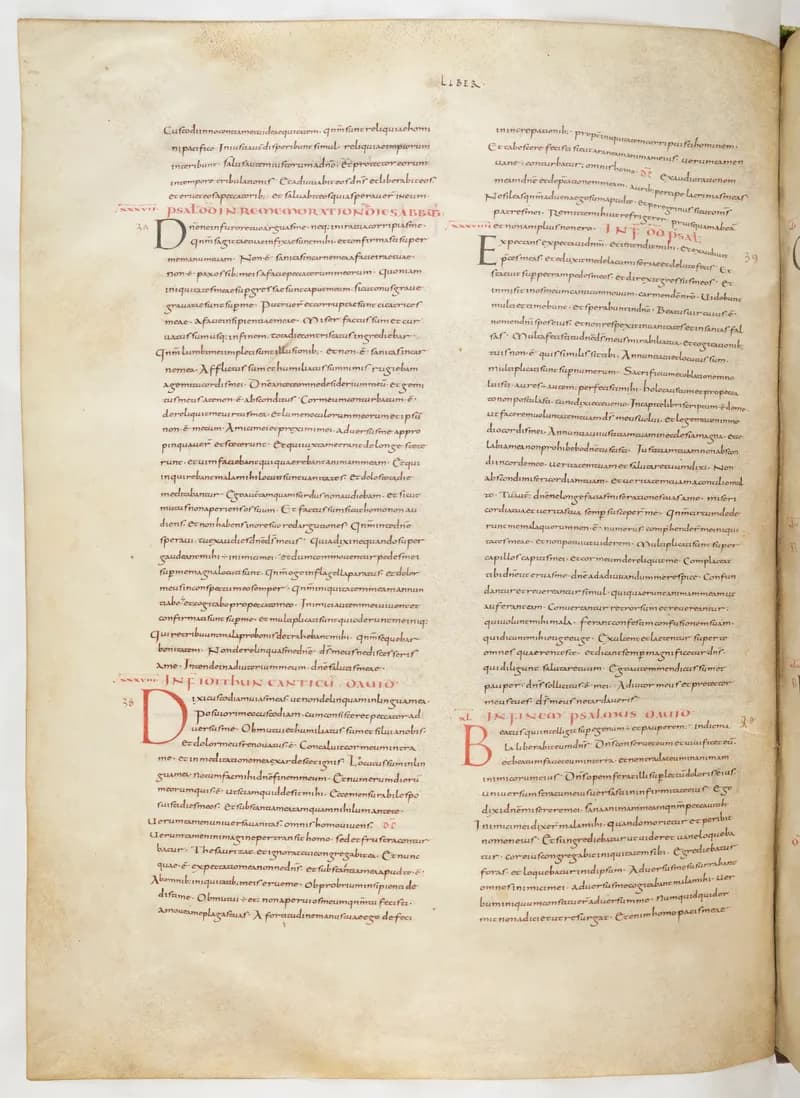 LIBER
Custodi innocentiam et uide aequitatem. qnm sunt reliquiae homi
ni pacifico. Iniusti aut disperibunt simul. reliquiae impiorum
interibunt. Salus autem iustorum a dno. et protector eorum
in tempore tribulationis. Et adiuuabit eos dns et liberabit eos
et eruet eos a peccatorib;. et saluabit eos quia sperauer in eum.
XXXVII PSAL DD IN REMEMORATION DIE SABBTI
Dne ne in furore tuo arguas me. neq; in ira tua corripias me.
Qnm sagittae tuae infixae sunt mihi. et confirmasti super
me manum tuam. Non ÷ sanitas in carne mea a facie irae tuae.
non ÷ pax ossib; meis a facie peccatorum meorum. Quoniam
iniquitates meae supgressae sunt caput meum. sicut onus graue
grauatae sunt sup me. Putruer et corruptae sunt cicatrices
meae. a facie insipientiae meae. Miser factus sum et cur
uatus sum usq; in finem. tota die contristatus ingrediebar.
Qnm lumbi mei impleti sunt illusionib;. et non ÷ sanitas in car
ne mea. Afflictus sum et humiliatus sum nimis. rugiebam
a gemitu cordis mei. Dne ante te omne desiderium meu. et gemi
tus meus a te non ÷ absconditus. Cor meum conturbatum ÷.
dereliquit me uirtus mea. et lumen oculorum meorum et ipsu
non ÷ mecum. Amici mei et proximi mei. aduersus me appro
pinquauer et steterunt. Et qui iuxta me erant de longe stete
runt. et uim faciebant qui quaerebant animam meam. Et qui
inquirebant mala mihi locuti sunt uanitates. et dolos tota die
meditabantur. Ego aut tamquam surdus non audiebam. et sicut
mutus non aperiens os suum. Et factus sum sicut homo non au
diens. et non habens in ore suo redargutiones. Qnm in te dne
speraui. tu exaudies dne ds meus. Quia dixi nequando super
gaudeant mihi inimici mei. et dum commouentur pedes mei
sup me magna locuti sunt. Qnm ego in flagella paratus. et dolor
meus in conspectu meo semper. Qnm iniquitatem meam annun
tiabo. et cogitabo pro peccato meo. Inimici autem mei uiuent et
confirmati sunt sup me. et multiplicati sunt qui oderunt me iniq;.
Qui retribuunt mala pro bonis detrahebant mihi. qnm sequebar
bonitatem. Non derelinquas me dne ds meus ne discesseris
a me. Intende in adiutorium meum. dne salutis meae.
XXXVIII IN FI IDITHUN CANTICU DAUID
38
Dixi custodiam uias meas. ut non delinquam in lingua mea.
Posui ori meo custodiam. cum consisteret peccator ad
uersum me. Obmutui et humiliatus sum et silui a bonis.
et dolor meus renouatus ÷. Concaluit cor meum intra
me. et in meditatione mea exardescet ignis. Locutus sum in lin
gua mea. notum fac mihi dne finem meum. Et numerum dieru
meorum qui ÷. ut sciam quid desit mihi. Ecce mensurabiles po
suisti dies meos. et substantia mea tamquam nihilum ante te.
Uerumtamen uniuersa uanitas. omnis homo uiuens.
Uerumtamen in imagine pertransit homo. sed et frustra contur
batur. Thesaurizat. et ignorat cui congregabit ea. Et nunc
quae ÷ expectatio mea nonne dns. et substantia mea apud te ÷.
Ab omnib; iniquitatib; meis erue me. obprobrium insipienti de
disti me. Obmutui et non aperui os meum qnm tu fecisti.
amoue a me plagas tuas. A fortitudine manus tuae ego defeci
in increpationib;. propt iniquitatem corripuisti hominem.
Et tabescere fecisti sicut araneam animam eius. uerumtamen
uane conturbatur. omnis homo. Exaudi orationem
meam dne et deprecationem meam. aurib; percipe lacrimas meas
Ne sileas qnm aduena ego sum apud te. et peregrinus sicut oms
patres mei. Remitte mihi ut refrigerer priusquam abeam
et non amplius non ero. XXXVIIII IN F DD PSAL
39
Expectans expectaui dnm. et intendit mihi. Et exaudiuit
preces meas. et eduxit me de lacu miseriae et de luto fecis. Et
statuit sup petram pedes meos. et direxit gressus meos. Et
inmisit in os meum canticum nouum. carmen do nro. Uidebunt
multi et timebunt. et sperabunt in dno. Beatus uir cuius ÷
nomen dni spes eius. et non respexit in uanitates et insanias fal
sas. Multa fecisti tu dne ds meus mirabilia tua. et cogitationib;
tuis non ÷ quis similis sit tibi. Annuntiaui et locutus sum.
multiplicati sunt sup numerum. Sacrificium et oblationem no
luisti. aures autem perfecisti mihi. Holocaustum et pro pecca
to non postulasti. tunc dixi ecce uenio. In capite libri scriptum ÷ de me
ut facerem uoluntatem tuam ds meus uolui. et legem tuam in me
dio cordis mei. Annuntiaui iustitiam tuam in ecclesia magna. ecce
labia mea non prohibebo dne tu scisti. Iustitiam tuam non abscon
di in corde meo. ueritatem tuam et salutare tuum dixi. Non
abscondi misericordiam tuam. et ueritatem tuam a concilio mul
to. Tu aut dne ne longe facias miserationes tuas a me. miseri
cordia tua et ueritas tua semp susceper me. Qnm circumdede
runt me mala quorum non ÷ numerus. comprehender me iniqui
tates meae. et non potui ut uiderem. Multiplicatae sunt super
capillos capitis mei. et cor meum dereliquit me. Complaceat
tibi dne ut eruas me. dne ad adiuuandum me respice. Confun
dantur et reuereantur simul. qui quaerunt animam meam ut
auferant eam. Conuertantur retrorsum et reuereantur.
qui uolunt mihi mala. ferant confestim confusionem suam.
qui dicunt mihi euge euge. Exultent et laetentur super te
omnes quaerentes te. et dicant semp magnificetur dns.
qui diligunt salutare tuum. Ego autem mendicus sum et
pauper. dns sollicitus ÷ mei. Adiutor meus et protector
meus tu es. ds meus ne tardaueris.
XL IN FINEM PSALMUS DAUID
Beatus qui intelligit sup egenum et pauperem. in die ma
la liberabit eum dns. Dns conseruet eum et uiuificet eu.
et beatum faciat eum in terra. et non tradat eum in animam
inimicorum eius. Dns opem ferat illi sup lectu doloris eius
uniuersum stratum eius uersasti in infirmitate eius. Ego
dixi dne miserere mei. sana animam meam qnm peccaui tibi
Inimici mei dixer mala mihi. quando morietur et peribit
nomen eius. Et si ingrediebatur ut uideret uane loqueba
tur. cor eius congregabit iniquitatem sibi. Egrediebatur
foras. et loquebatur in id ipsum. Aduersum me susurrabant
omnes inimici mei. aduersus me cogitabant mala mihi. Uer
bum iniquum constituer aduersum me. numquid qui dor
mit non adiciet ut resurgat. Etenim homo pacis meae